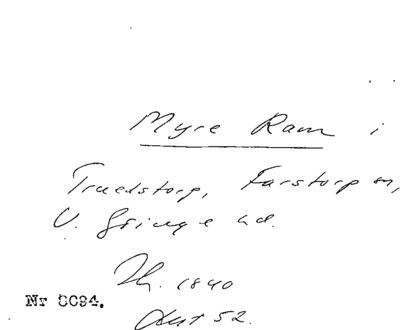 Myre Ram i
Truedstorp, Farstorp sn,
V. Göinge hd.
Th. 1840
Aut 52.
Nr 8094.